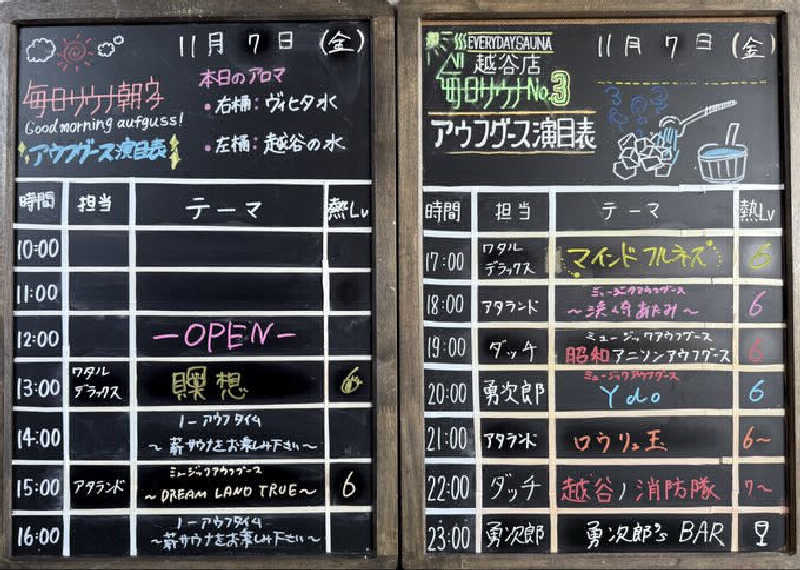 11月 7日 (金)
毎日サウナ朝宴
Good morning aufguss!
アウフグース演目表
本日のアロマ
・右桶: ヴィヒタ水
・左桶: 越谷の水
時間 担当 テーマ 熱Lv
10:00
11:00
12:00 -OPEN-
13:00 ワタルデラックス 瞑想 6
14:00 ノーアウフタイム
〜薪サウナをお楽しみ下さい〜
15:00 アタランド ミュージックアウフグース
〜DREAM LAND TRUE〜 6
16:00 ノーアウフタイム
〜薪サウナをお楽しみ下さい〜
EVERYDAY SAUNA
越谷店
毎日サウナNo.3
アウフグース演目表
11月 7日 (金)
時間 担当 テーマ 熱Lv
17:00 ワタルデラックス マインドフルネス 6
18:00 アタランド ミュージックアウフグース
〜浜崎あたみ〜 6
19:00 ダッチ ミュージックアウフグース
昭和アニソンアウフグース 6
20:00 勇次郎 ミュージックアウフグース
Ydo 6
21:00 アタランド ロウリュ玉 6〜
22:00 ダッチ 越谷ノ消防隊 7〜
23:00 勇次郎 勇次郎's BAR